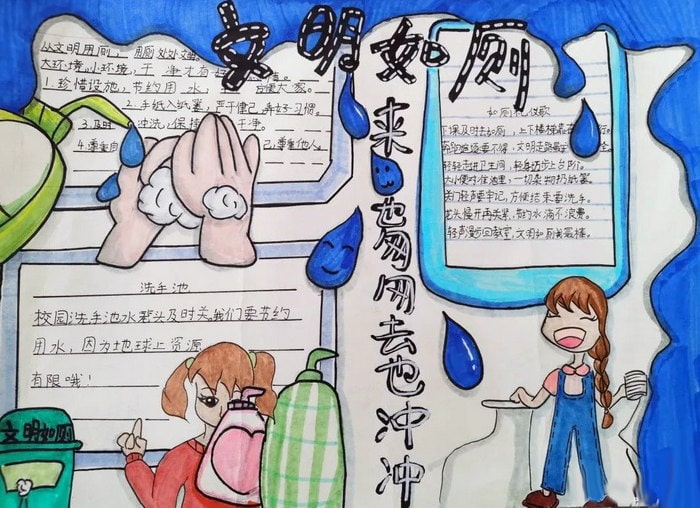 文明如厕
来也匆匆去也冲冲
从文明用厕,用厕处处文明
大环境,小环境,干净才有好
1.珍惜设施,节约用水,方便大家。
2.手纸入纸篓,严于律己,养好习惯。
3.及时冲洗,保持干净。
4.尊重自己,尊重他人。
如厕礼仪歌
下课及时去如厕,上下楼梯靠右行。
追逐要不得,文明走路最安全。
轻轻走进卫生间,轻身迈步上台阶。
大小便时准池里,一切杂物扔纸篓。
关门轻声要牢记,方便结束要洗手。
龙头慢开再关紧,节约水滴不浪费。
轻声漫步回教室,文明如厕我最棒。
洗手池
校园洗手池水龙头及时关,我们要节约
用水,因为地球上资源
有限哦!
文明如厕